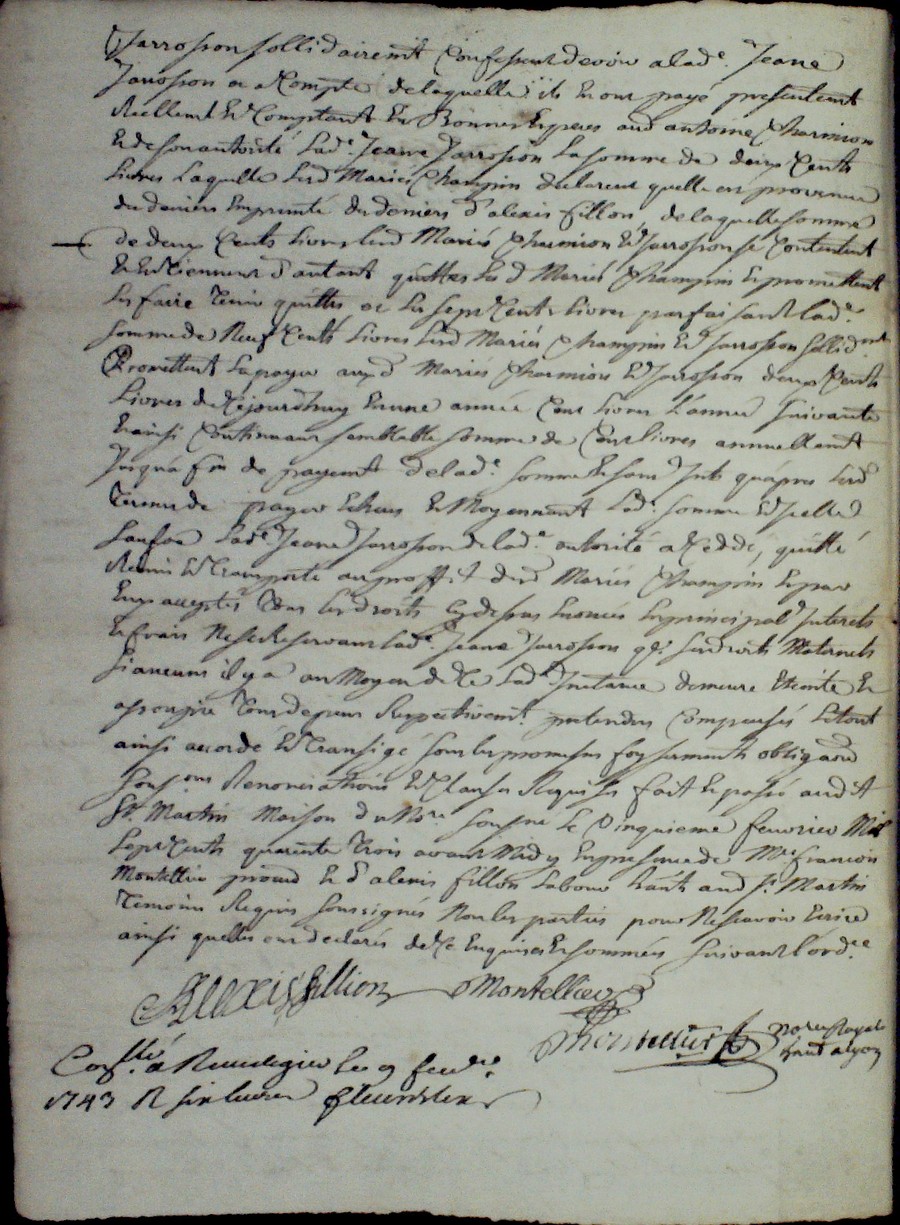 Jarrosson sollidairemt confessent devoir a lade. Jeane
Jarosson a compte de laquelle ils en ont payé presentemt
reellemt et comptant en bonnes especes aud antoine Charmion
et de son autorité lade. Jeane Jarrosson la somme de deux cents
livres laquelle lesd Mariés Champin declarent quelle est provenue
du deniers emprunté du deniers d'alexis fillon, de laquelle somme
de deux cents livres lesd Mariés Charmion et Jarrosson se contentent
et en tiennent d'autant quittes lesd Mariés Champin et promettent
les faire tenir quittes et les sept cents livres parfaisant lade.
somme de Neuf cents livres lesd Mariés Champin et Jarrosson sollidmt
Promettent la payer auxd Mariés Charmion et Jarrosson deux cents
livres de cejourdhuy en une année cent livres l'année suivante
et ainsi continuant semblable somme de cent livres annuellemt
Jusquà fin de payemt de lade. somme et sans Jnts quàpres lesd
termes de payer echeus et Moyennant lade. somme et Jcelle
sauf lade. Jeane Jarrosson de lade. autorité a cedé, quitté
Remis et transporté au proffit desd Mariés Champin et par
Eux acceptés tous les droits cy dessus Enoncés en principal Jnterets
et frais Ne se Reservant lade. Jeane Jarrosson qe. ses droits Maternels
si aucuns il y a au Moyen de ce lade. Jnstance demeure eteinte et
assoupie tous depens Respectivemt. pretendus compensés le tout
ainsi accordé et transigé sous les promesses foy serments obligaõns
soubons Renonciations et clauses Requises fait et passé audit
St. Martin Maison du Nore soussné le cinquieme fevrier Mil
sept cents quarente trois avant Midy en presence de Mre francois
Montellier et d'alexis fillon Labour hants aud st. Martin
temoins Requis soussignés Non les parties pour Ne scavoir ecrire
ainsi quelles ont declarés de ce enquises et sommés suivant l'ordce.
Alexis fillion Montellier
Montellier Nore Royal
Conllé. a le 9 fevrier
1743 R six livres